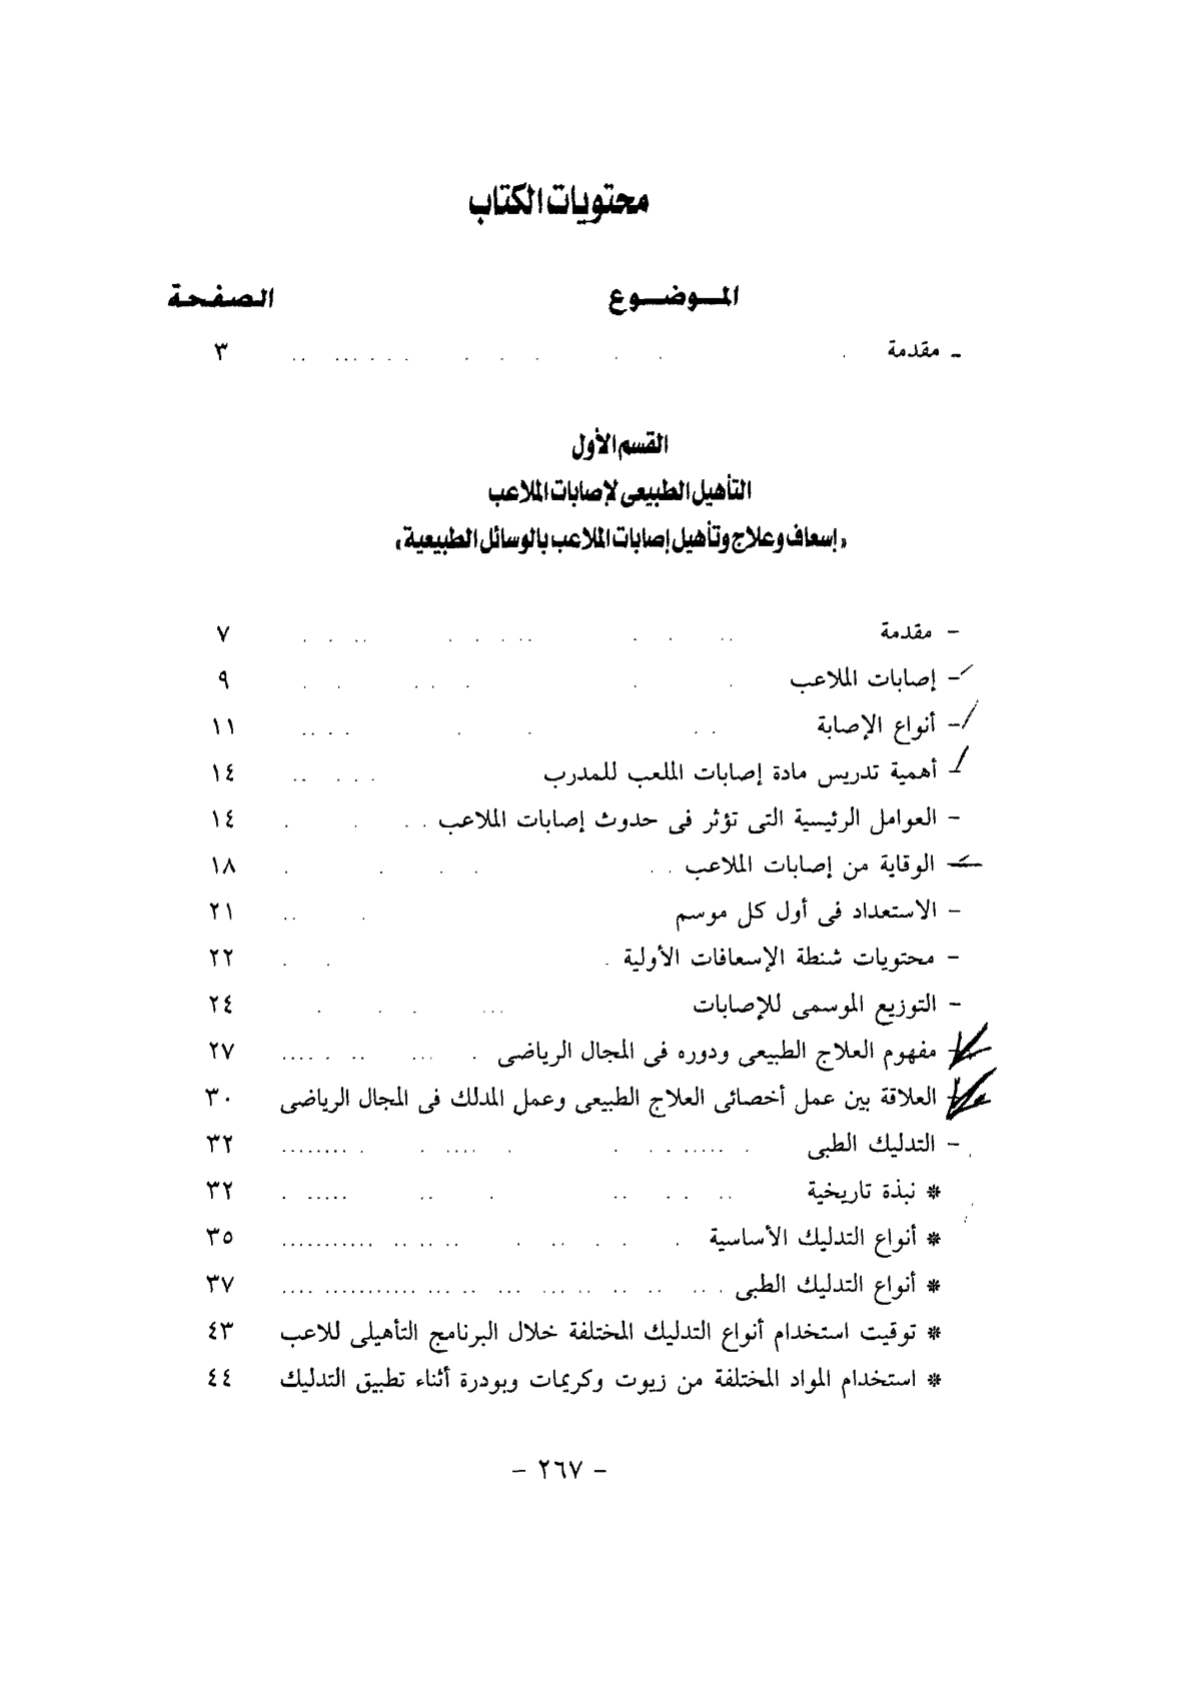 محتويات الكتاب
الموضوع الصفحة
- مقدمة ٣
القسم الأول
التأهيل الطبيعى لإصابات الملاعب
«إسعاف وعلاج وتأهيل إصابات الملاعب بالوسائل الطبيعية»
- مقدمة ٧
- إصابات الملاعب ٩
- أنواع الإصابة ١١
- أهمية تدريس مادة إصابات الملعب للمدرب ١٤
- العوامل الرئيسية التى تؤثر فى حدوث إصابات الملاعب ١٤
- الوقاية من إصابات الملاعب ١٨
- الاستعداد فى أول كل موسم ٢١
- محتويات شنطة الإسعافات الأولية ٢٢
- التوزيع الموسمى للإصابات ٢٤
- مفهوم العلاج الطبيعى ودوره فى المجال الرياضى ٢٧
- العلاقة بين عمل أخصائى العلاج الطبيعى وعمل المدلك فى المجال الرياضى ٣٠
- التدليك الطبى ٣٢
* نبذة تاريخية ٣٢
* أنواع التدليك الأساسية ٣٥
* أنواع التدليك الطبى ٣٧
* توقيت استخدام أنواع التدليك المختلفة خلال البرنامج التأهيلى للاعب ٤٣
* استخدام المواد المختلفة من زيوت وكريمات وبودرة أثناء تطبيق التدليك ٤٤
- ٢٦٧ -